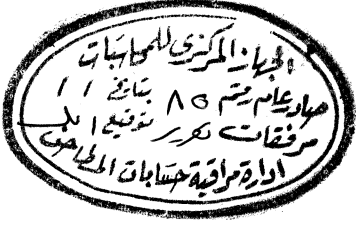 الجهاز المركزى للمحاسبات
صادر عام رقم ٨٥ بتاريخ / /
مرفقات تقرير بتوقيع أ
ادارة مراقبة حسابات المطاحن